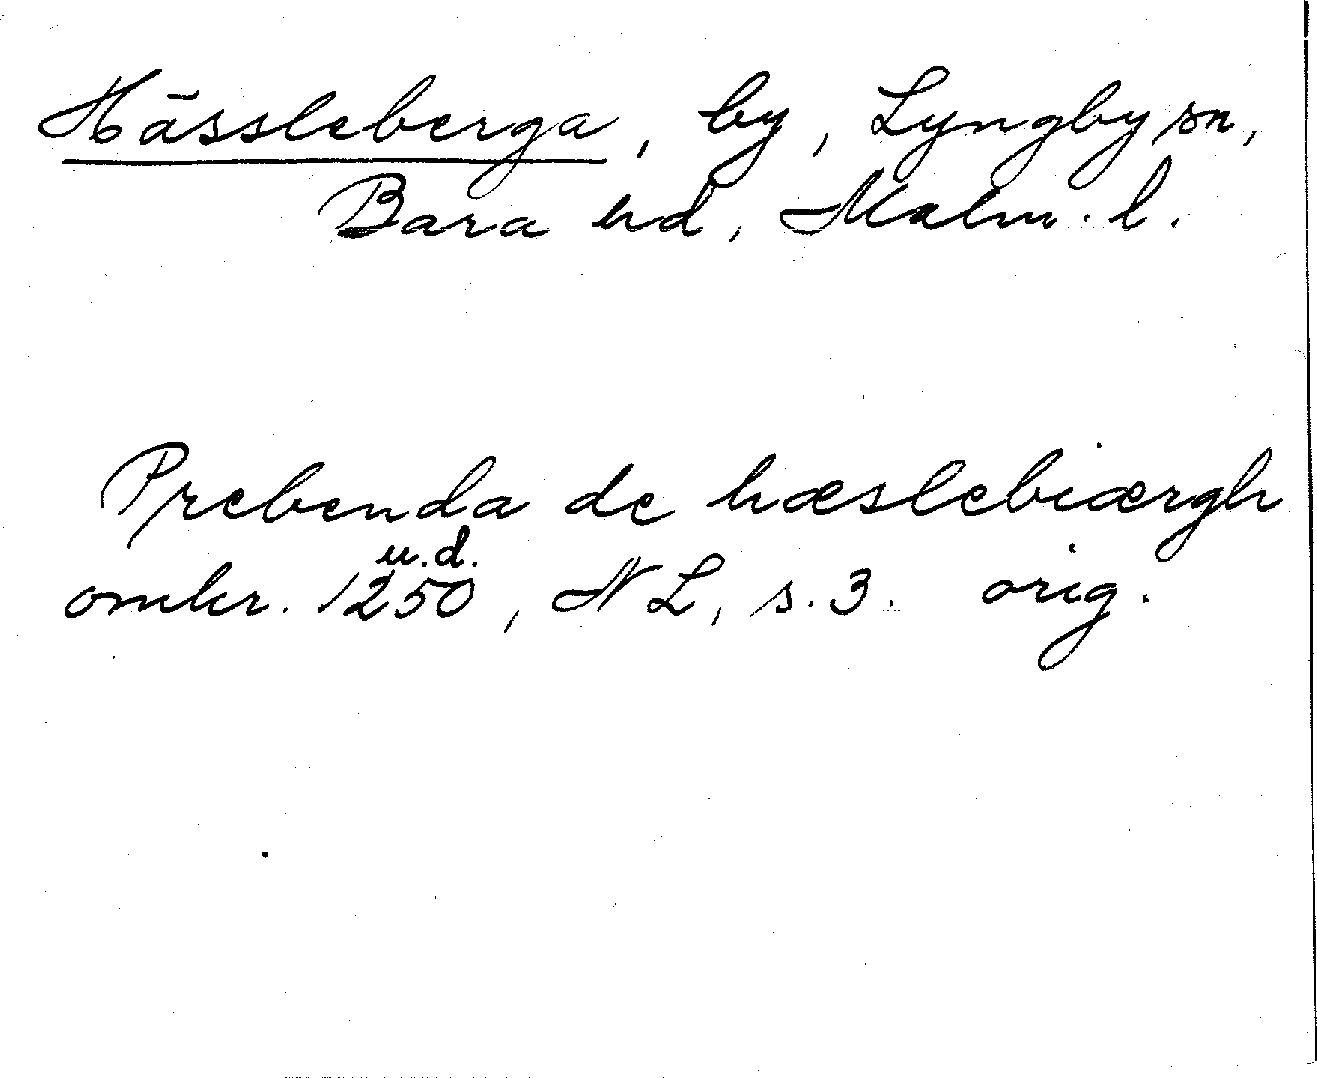 Hässleberga, by, Lyngby sn,
Bara hd, Malm. l.
Prebenda de hæslebiærgh
u.d.
omkr. 1250, NL, s. 3. orig.